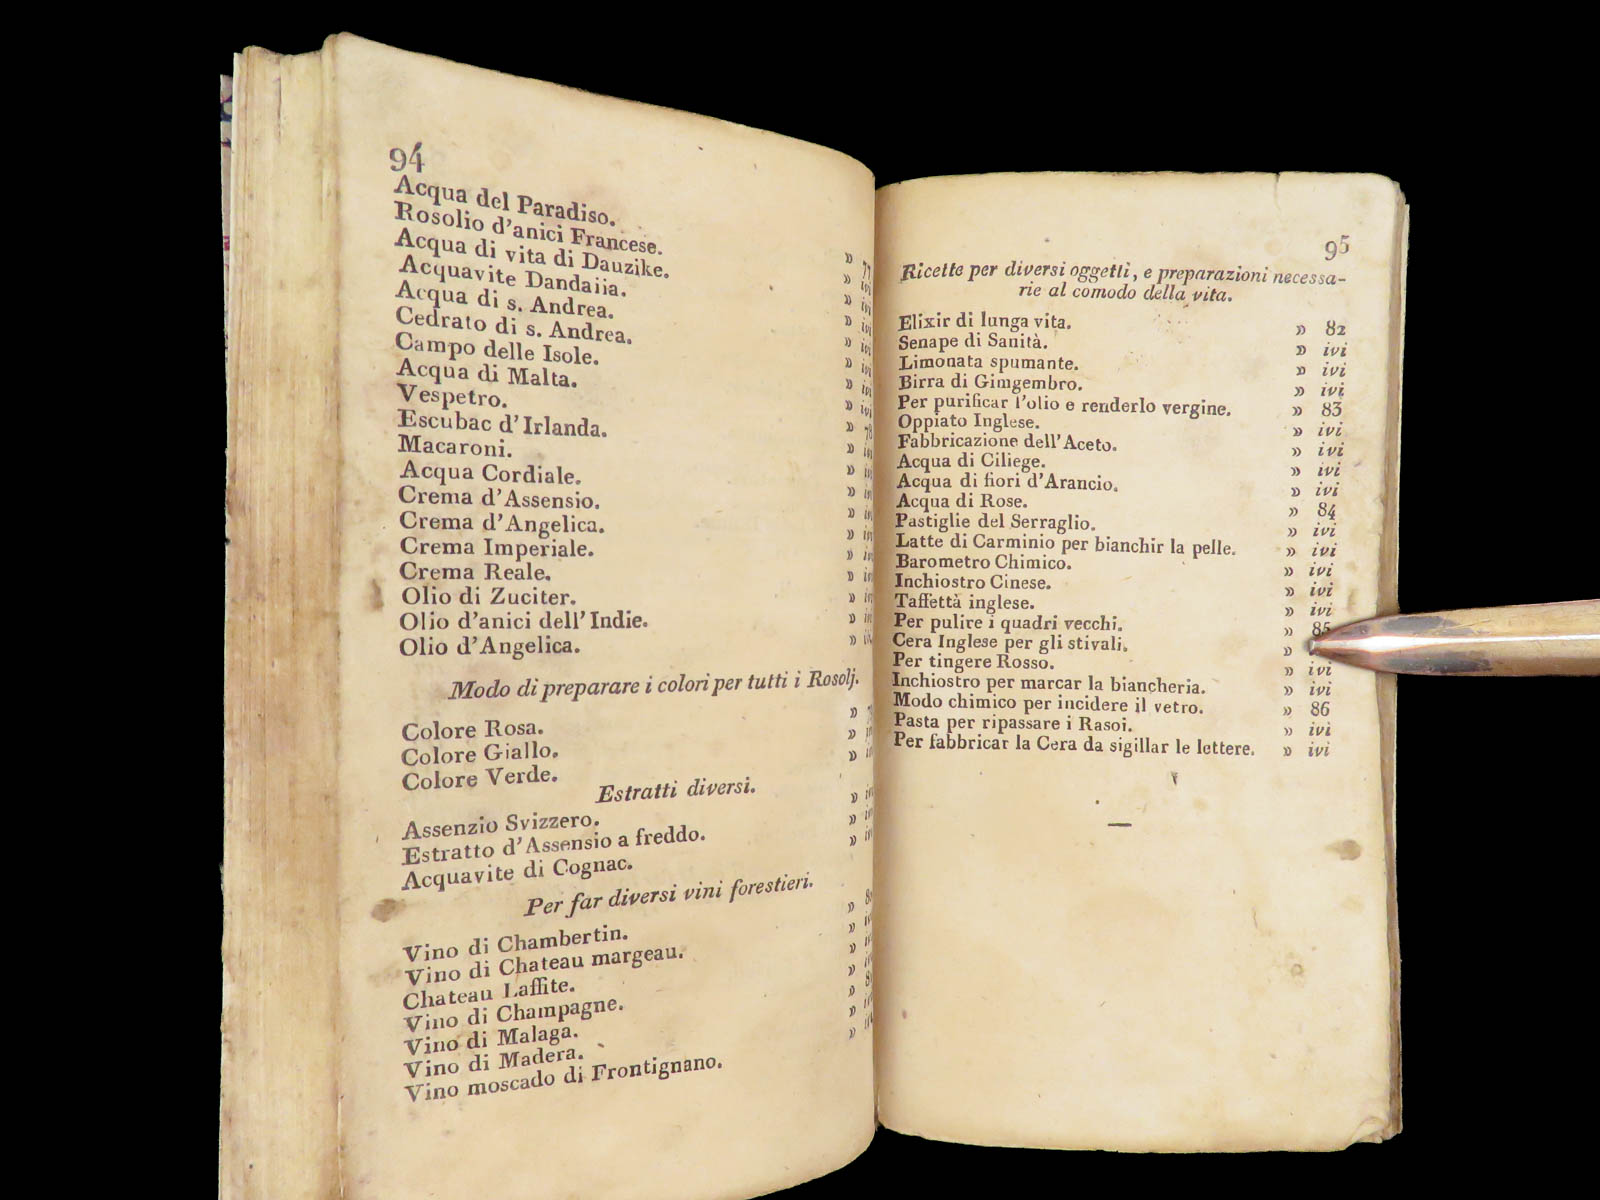 94
Acqua del Paradiso. »
Rosolio d'anici Francese. »
Acqua di vita di Dauzike. »
Acquavite Dandaiia. »
Acqua di s. Andrea. »
Cedrato di s. Andrea. »
Campo delle Isole. »
Acqua di Malta. »
Vespetro. »
Escubac d'Irlanda. »
Macaroni. »
Acqua Cordiale. »
Crema d'Assensio. »
Crema d'Angelica. »
Crema Imperiale. »
Crema Reale. »
Olio di Zuciter. »
Olio d'anici dell'Indie. »
Olio d'Angelica. »
Modo di preparare i colori per tutti i Rosolj.
Colore Rosa. »
Colore Giallo. »
Colore Verde. »
Estratti diversi.
Assenzio Svizzero. »
Estratto d'Assensio a freddo. »
Acquavite di Cognac. »
Per far diversi vini forestieri.
Vino di Chambertin. »
Vino di Chateau margeau. »
Chateau Laffite. »
Vino di Champagne. »
Vino di Malaga. »
Vino di Madera. »
Vino moscado di Frontignano. »
95
Ricette per diversi oggetti, e preparazioni necessa-
rie al comodo della vita.
Elixir di lunga vita. » 82
Senape di Sanità. » ivi
Limonata spumante. » ivi
Birra di Gimgembro. » ivi
Per purificar l'olio e renderlo vergine. » 83
Oppiato Inglese. » ivi
Fabbricazione dell'Aceto. » ivi
Acqua di Ciliege. » ivi
Acqua di fiori d'Arancio. » ivi
Acqua di Rose. » 84
Pastiglie del Serraglio. » ivi
Latte di Carminio per bianchir la pelle. » ivi
Barometro Chimico. » ivi
Inchiostro Cinese. » ivi
Taffettà inglese. » ivi
Per pulire i quadri vecchi. » 85
Cera Inglese per gli stivali. »
Per tingere Rosso. » ivi
Inchiostro per marcar la biancheria. » ivi
Modo chimico per incidere il vetro. » 86
Pasta per ripassare i Rasoi. » ivi
Per fabbricar la Cera da sigillar le lettere. » ivi